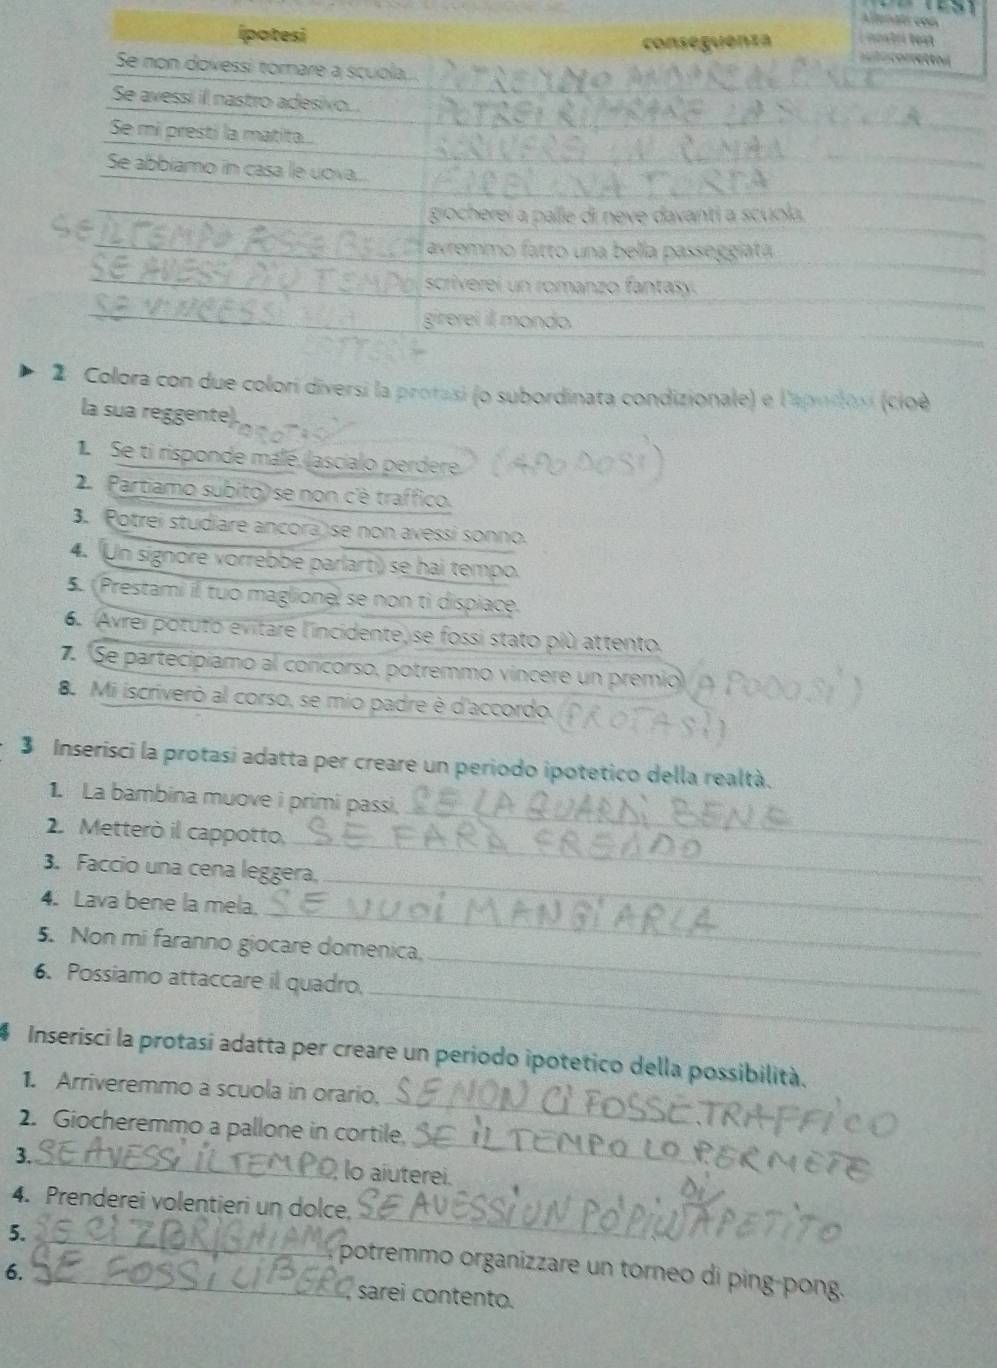 TEST
ipotesi conseguenza
Se non dovessi tornare a scuola... POTREMMO ANDARE AL
Se avessi il nastro adesivo... POTREI RIPARARE LA
Se mi presti la matita... SCRIVERÒ UN ROMAN
Se abbiamo in casa le uova... UNA TORTA
giocherei a palle di neve davanti a scuola.
SE IL TEMPO FOSSE BELLO avremmo fatto una bella passeggiata.
SE AVESSI PIÙ TEMPO scriverei un romanzo fantasy.
SE VINCESSI girerei il mondo.
2 Colora con due colori diversi la protasi (o subordinata condizionale) e l'apodosi (cioè
la sua reggente).
1. Se ti risponde male, lascialo perdere. (APODOSI)
2. Partiamo subito, se non c'è traffico.
3. Potrei studiare ancora, se non avessi sonno.
4. Un signore vorrebbe parlarti, se hai tempo.
5. Prestami il tuo maglione, se non ti dispiace.
6. Avrei potuto evitare l'incidente, se fossi stato più attento.
7. Se partecipiamo al concorso, potremmo vincere un premio. (APODOSI)
8. Mi iscriverò al corso, se mio padre è d'accordo. (PROTASI)
3 Inserisci la protasi adatta per creare un periodo ipotetico della realtà.
1. La bambina muove i primi passi, SE LA QUARDI BENE
2. Metterò il cappotto, SE FARÀ FREDDO
3. Faccio una cena leggera,
4. Lava bene la mela, SE VUOI MANGIARLA
5. Non mi faranno giocare domenica,
6. Possiamo attaccare il quadro,
4 Inserisci la protasi adatta per creare un periodo ipotetico della possibilità.
1. Arriveremmo a scuola in orario, SE NON CI FOSSE TRAFFICO
2. Giocheremmo a pallone in cortile, SE IL TEMPO LO PERMETE
3. SE AVESSI IL TEMPO, lo aiuterei.
4. Prenderei volentieri un dolce, SE AVESSI UN PÒ PIÙ DI APETITO
5. SE CI , potremmo organizzare un torneo di ping-pong.
6. SE FOSSI LIBERO, sarei contento.